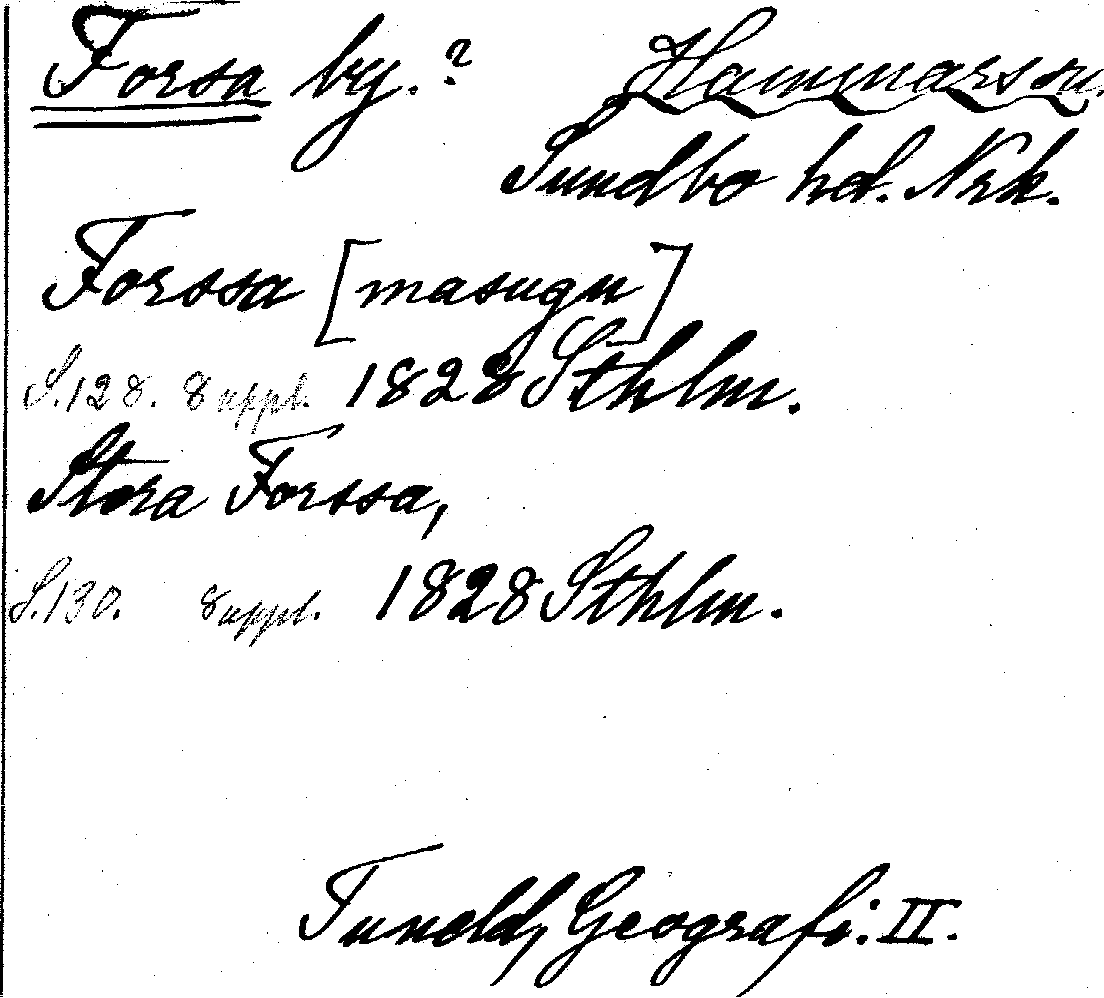 Forsa by.? Hammarssn.
Sundbo hd. Nrk.
Forssa [masugn]
S.128. 8 uppl. 1828 Sthlm.
Stora Forssa,
S.130. 8 uppl. 1828 Sthlm.
Tuneld, Geografi. II.